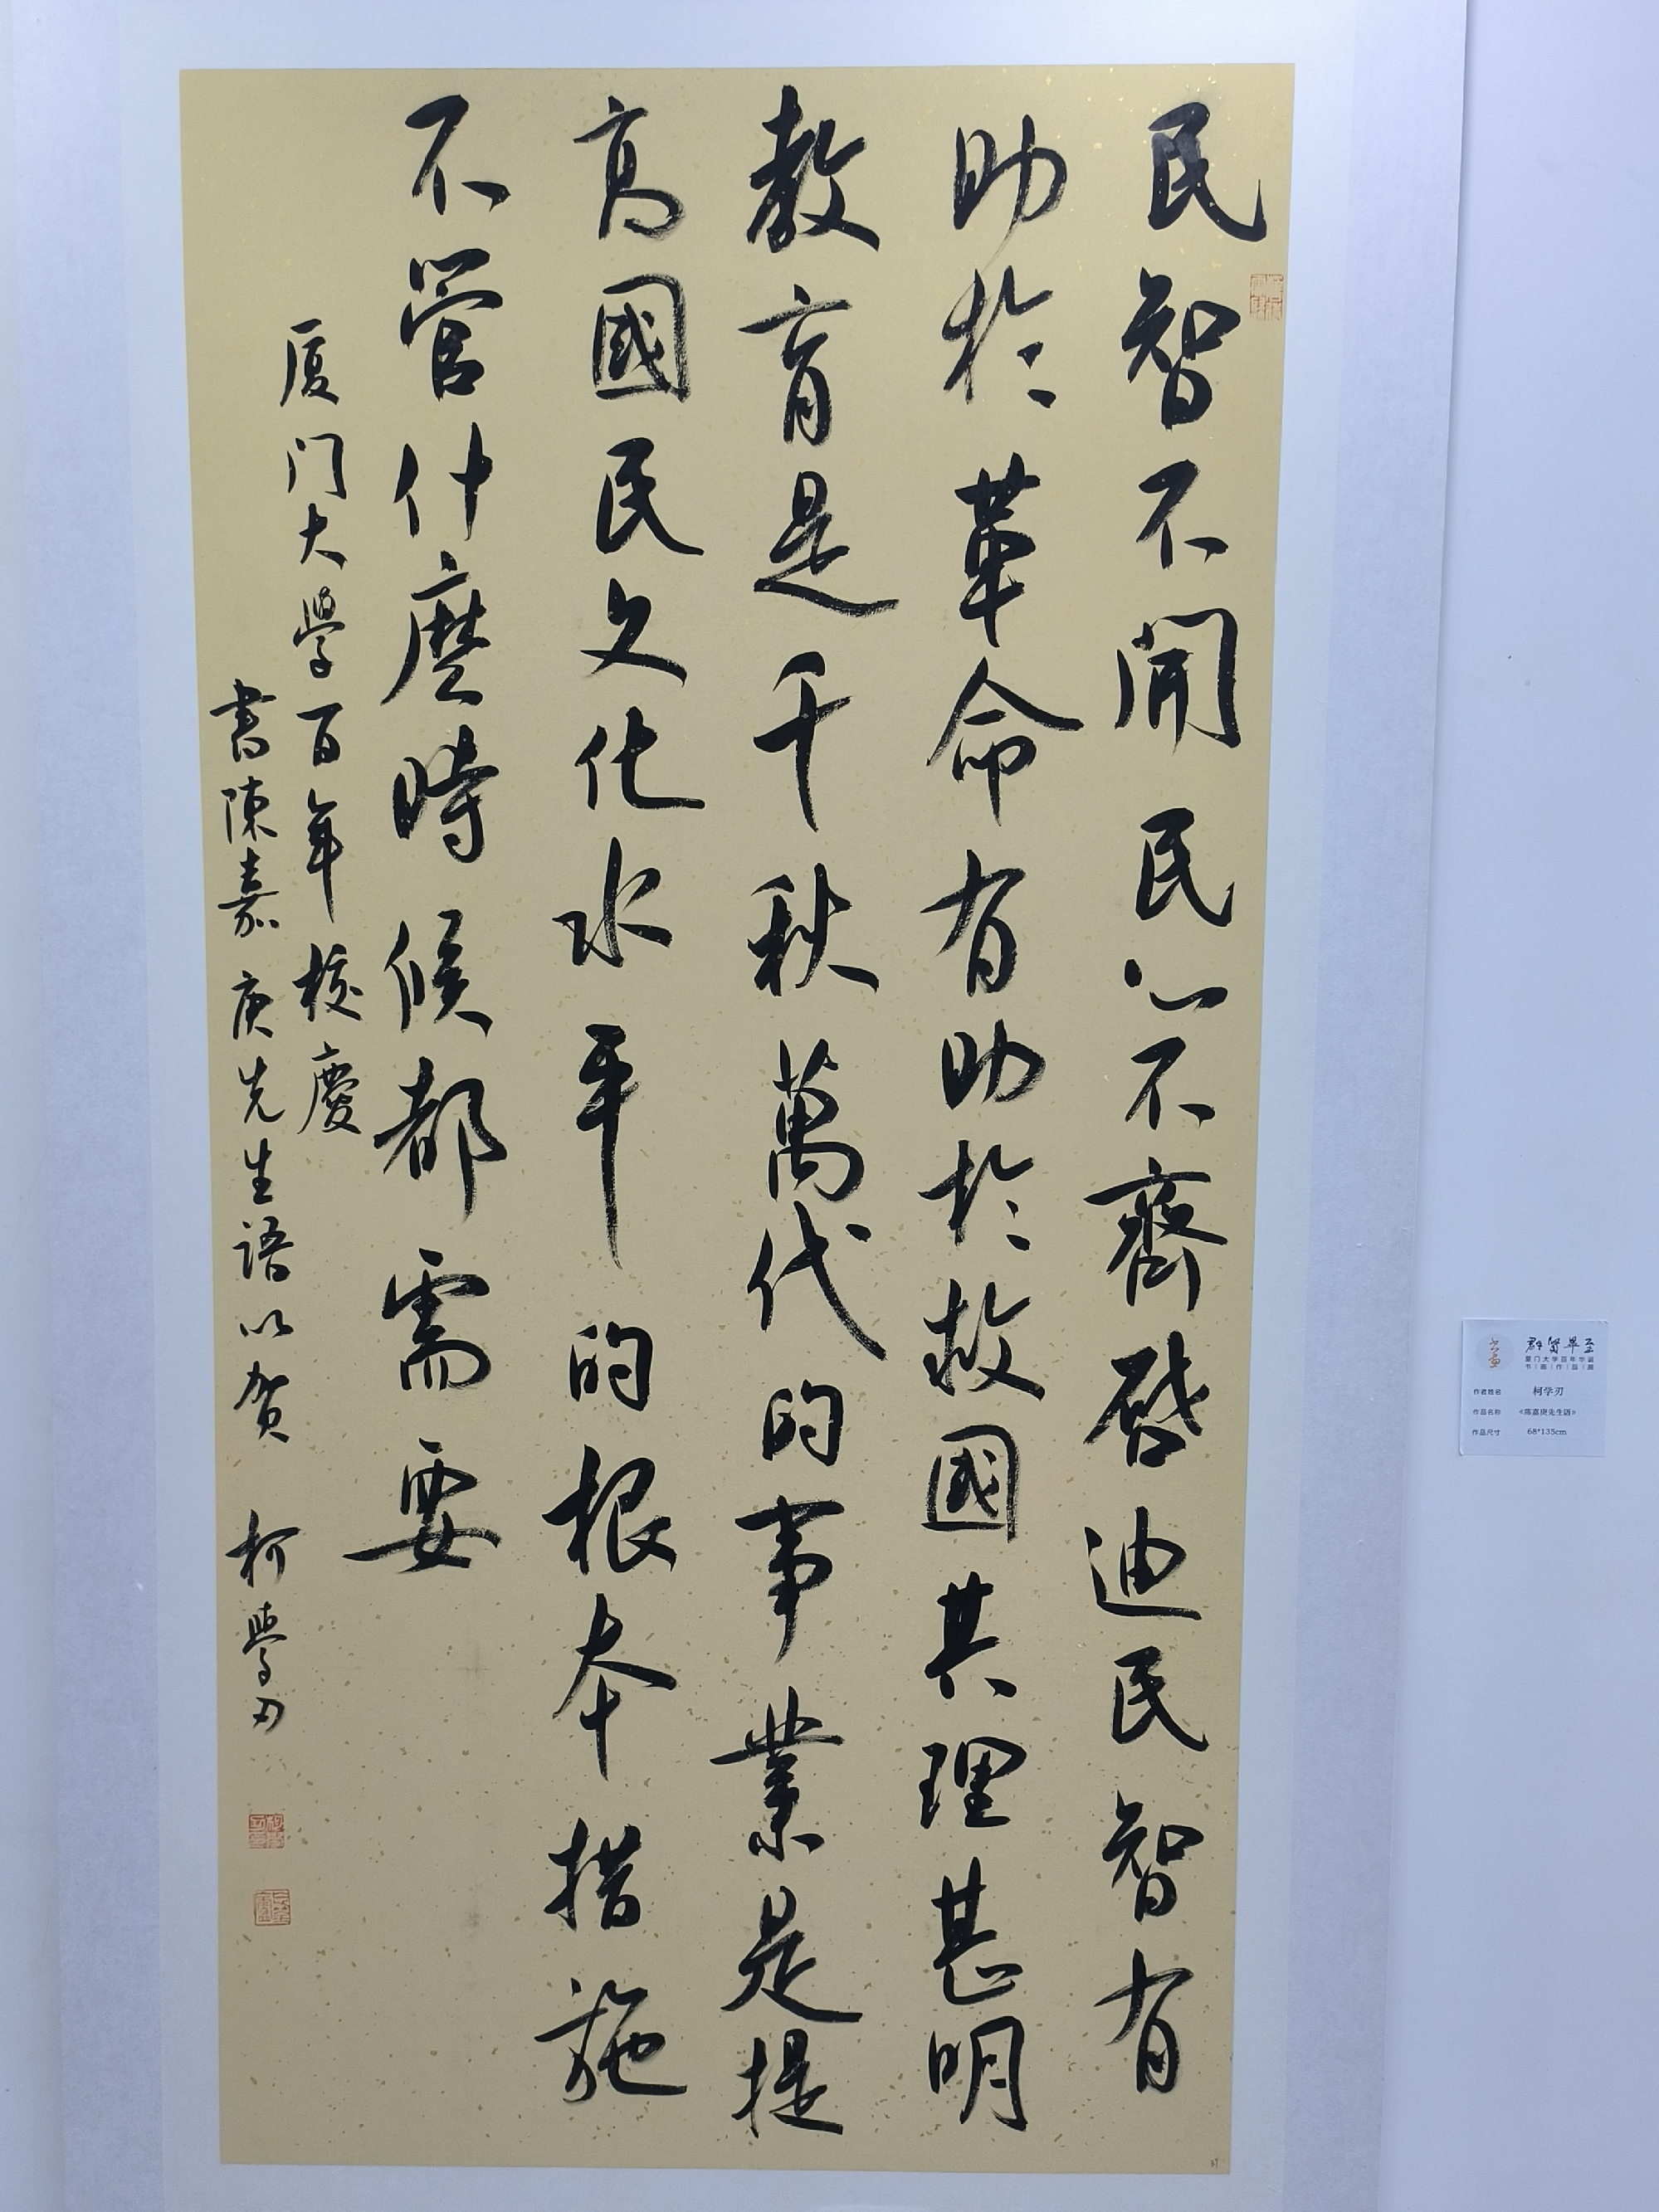 民智不開民心不齊啓迪民智有
助於革命有助於救國其理甚明
教育是千秋萬代的事業是提
高國民文化水平的根本措施
不管什麼時候都需要
厦门大學百年校慶
書陳嘉庚先生語以贺 柯學刃
群贤毕至
厦门大学百年华诞
书画作品展
作者姓名 柯学刃
作品名称 《陈嘉庚先生语》
作品尺寸 68*135cm